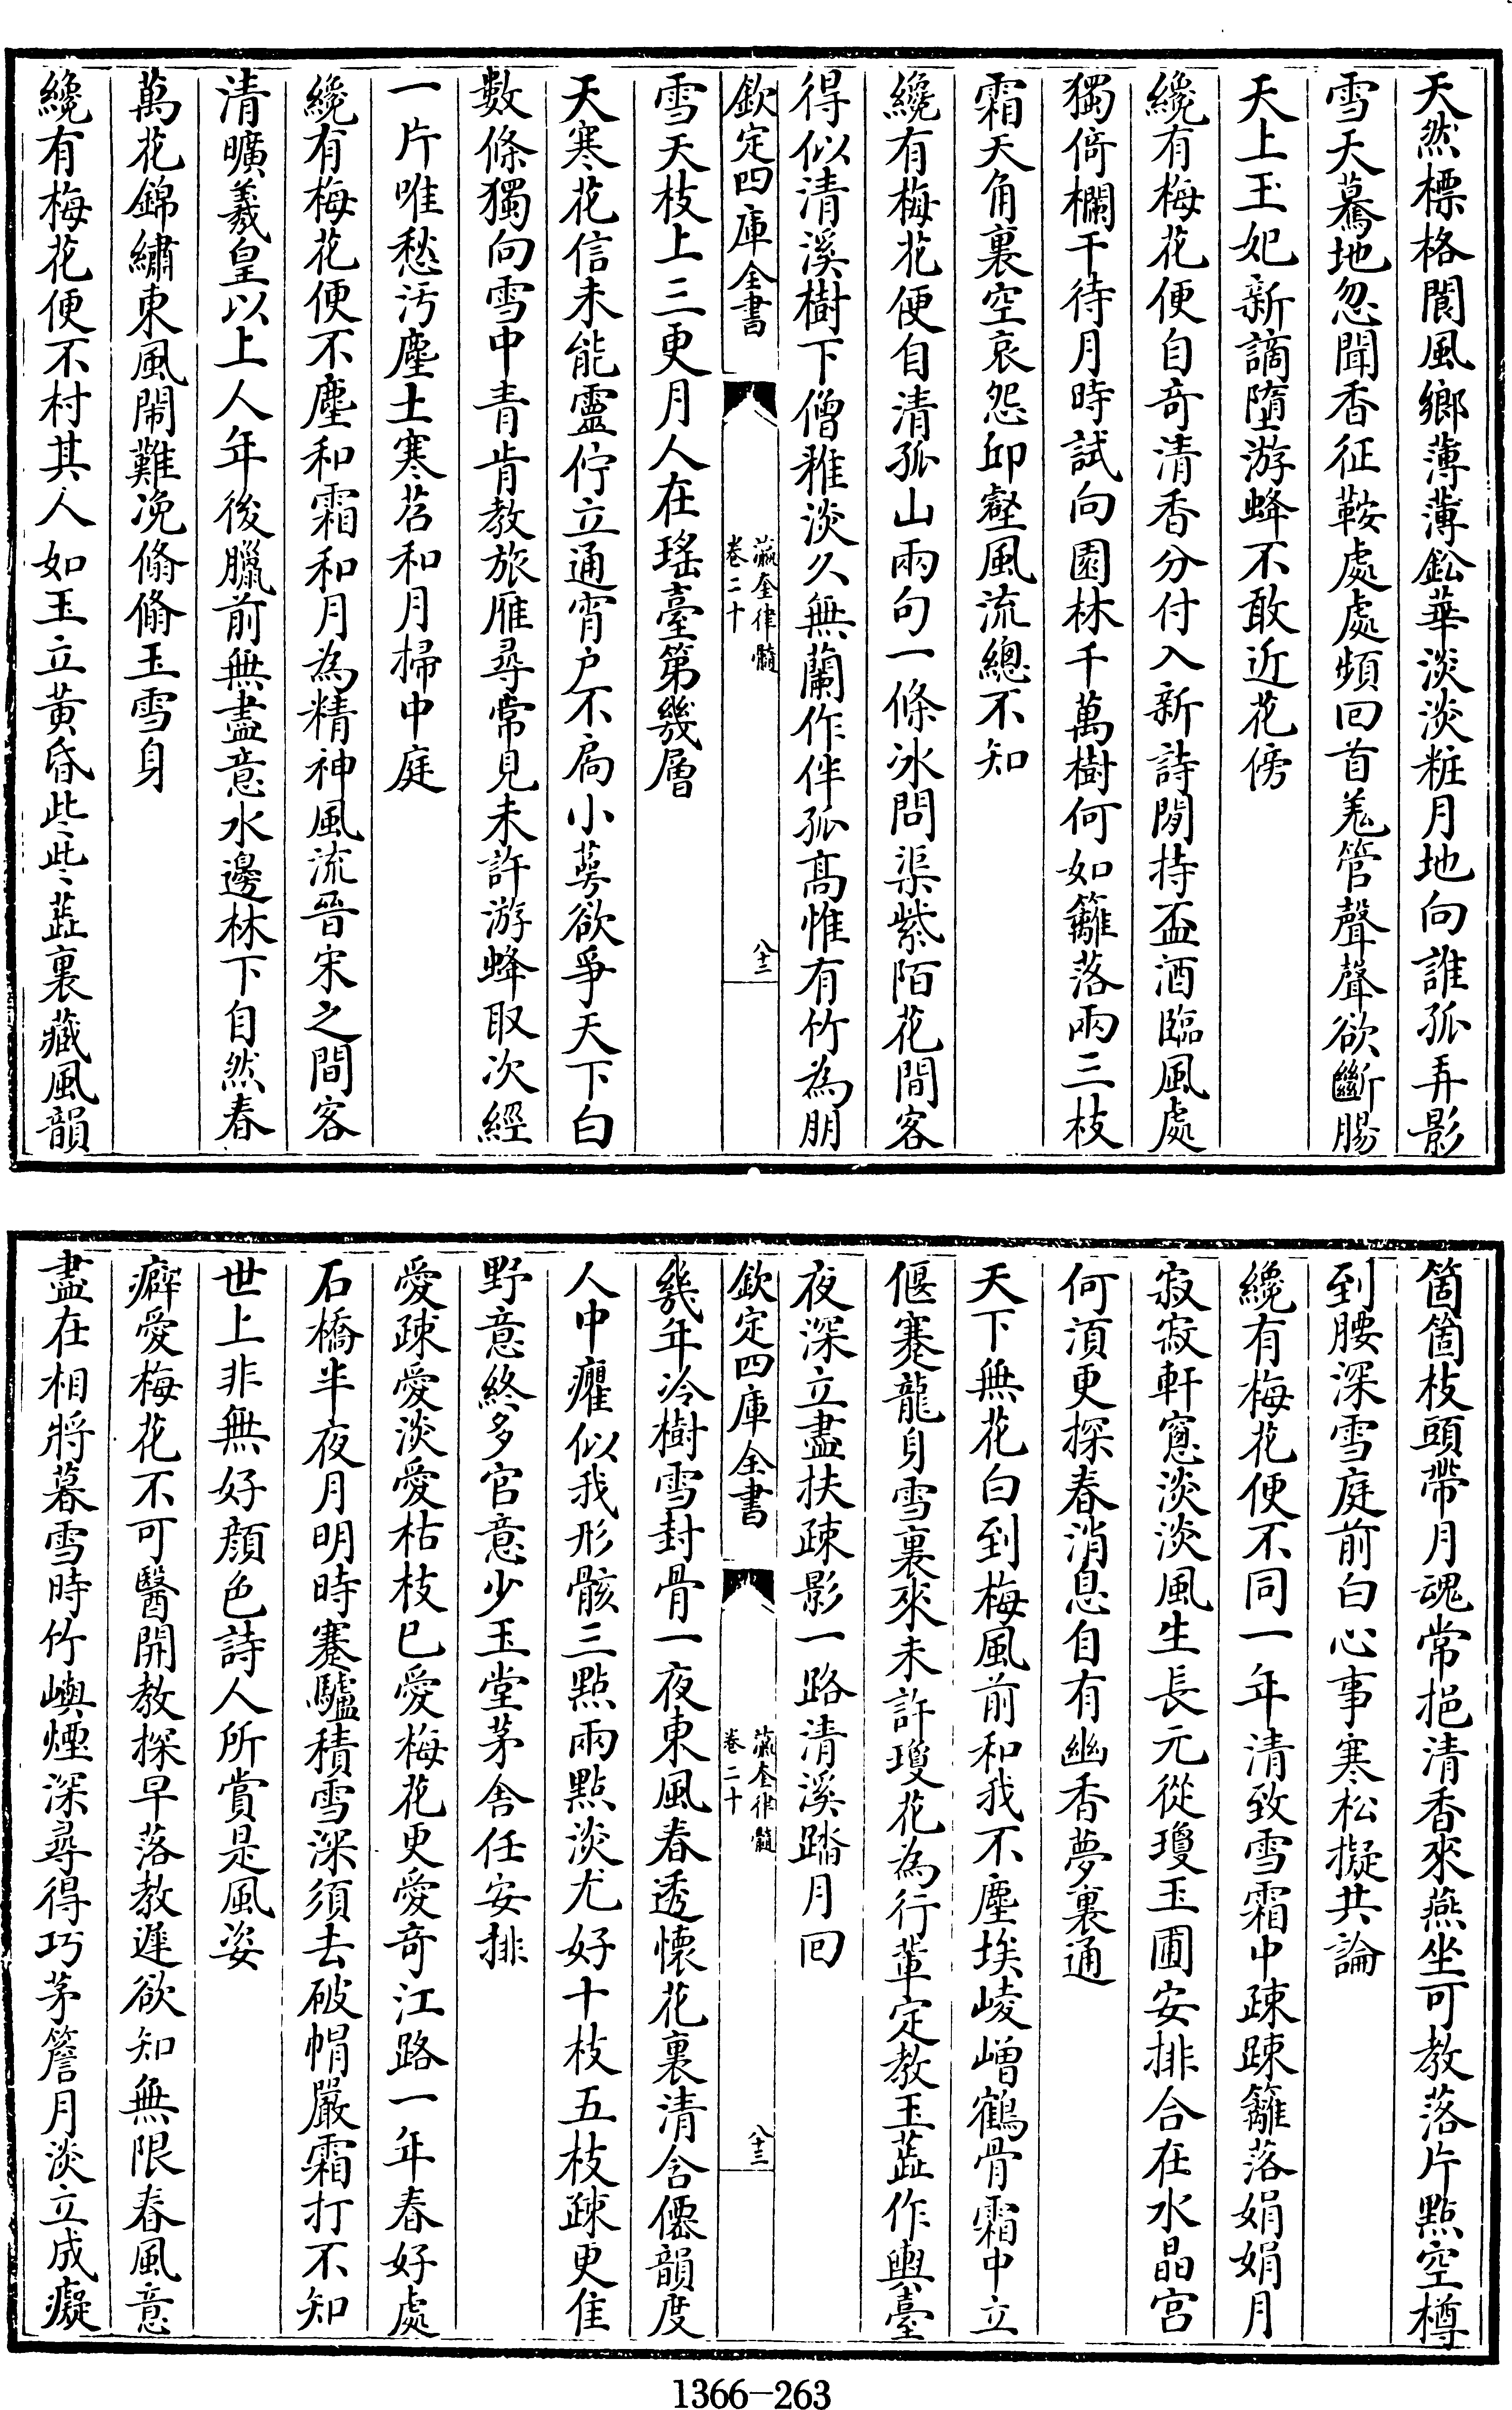 天然標格閬風鄉薄薄鉛華淡淡粧月地向誰孤弄影
雪天驀地忽聞香征鞍處處頻回首羗管聲聲欲斷腸
天上玉妃新謫墮游蜂不敢近花傍
纔有梅花便自奇清香分付入新詩閒持盃酒臨風處
獨倚欄干待月時試向園林千萬樹何如籬落兩三枝
霜天角裏空哀怨邱壑風流總不知
纔有梅花便自清孤山兩句一條冰問渠紫陌花間客
得似清溪樹下僧稚淡久無蘭作伴孤髙惟有竹為朋
欽定四庫全書
瀛奎律髓
卷二十
八十二
雪天枝上三更月人在瑤臺第幾層
天寒花信未能靈佇立通宵户不扃小萼欲爭天下白
數條獨向雪中青肯教旅雁尋常見未許游蜂取次經
一片唯愁汚塵土寒苕和月掃中庭
纔有梅花便不塵和霜和月為精神風流晉宋之間客
清曠羲皇以上人年後臘前無盡意水邊林下自然春
萬花錦繡東風鬧難浼翛翛玉雪身
纔有梅花便不村其人如玉立黄昏些些蘂裏藏風韻
箇箇枝頭帶月魂常挹清香來燕坐可教落片點空樽
到腰深雪庭前白心事寒松擬共論
纔有梅花便不同一年清致雪霜中疎疎籬落娟娟月
寂寂軒窓淡淡風生長元從瓊玉圃安排合在水晶宫
何湏更探春消息自有幽香夢裏通
天下無花白到梅風前和我不塵埃崚嶒鶴骨霜中立
偃蹇龍身雪裏來未許瓊花為行輩定教玉蘂作輿臺
夜深立盡扶疎影一路清溪踏月囘
欽定四庫全書
瀛奎律髓
卷二十
八十三
幾年冷樹雪封骨一夜東風春透懷花裏清含僊韻度
人中癯似我形骸三點兩點淡尤好十枝五枝疎更佳
野意終多官意少玉堂茅舍任安排
愛疎愛淡愛枯枝已愛梅花更愛奇江路一年春好處
石橋半夜月明時蹇驢積雪深須去破帽嚴霜打不知
世上非無好顔色詩人所賞是風姿
癖愛梅花不可醫開教探早落教遲欲知無限春風意
盡在相將暮雪時竹嶼煙深尋得巧茅簷月淡立成癡
1366-263